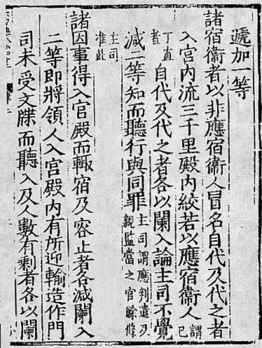 遞加一等
諸宿衛者以非應宿衛人冒名自代及代之者
入宮內流三千里殿內絞若以應宿衛人謂已
下直者自代及代之者各以闌入論主司不覺
減二等知而聽行與同罪主司謂應判遣及親監當之官餘條
主司准此
諸因事得入宮殿而輒宿及容止者各減闌入
二等即將領人入宮殿內有所迎輸造作門
司未受文牒而聽入及人數有剩者各以闌